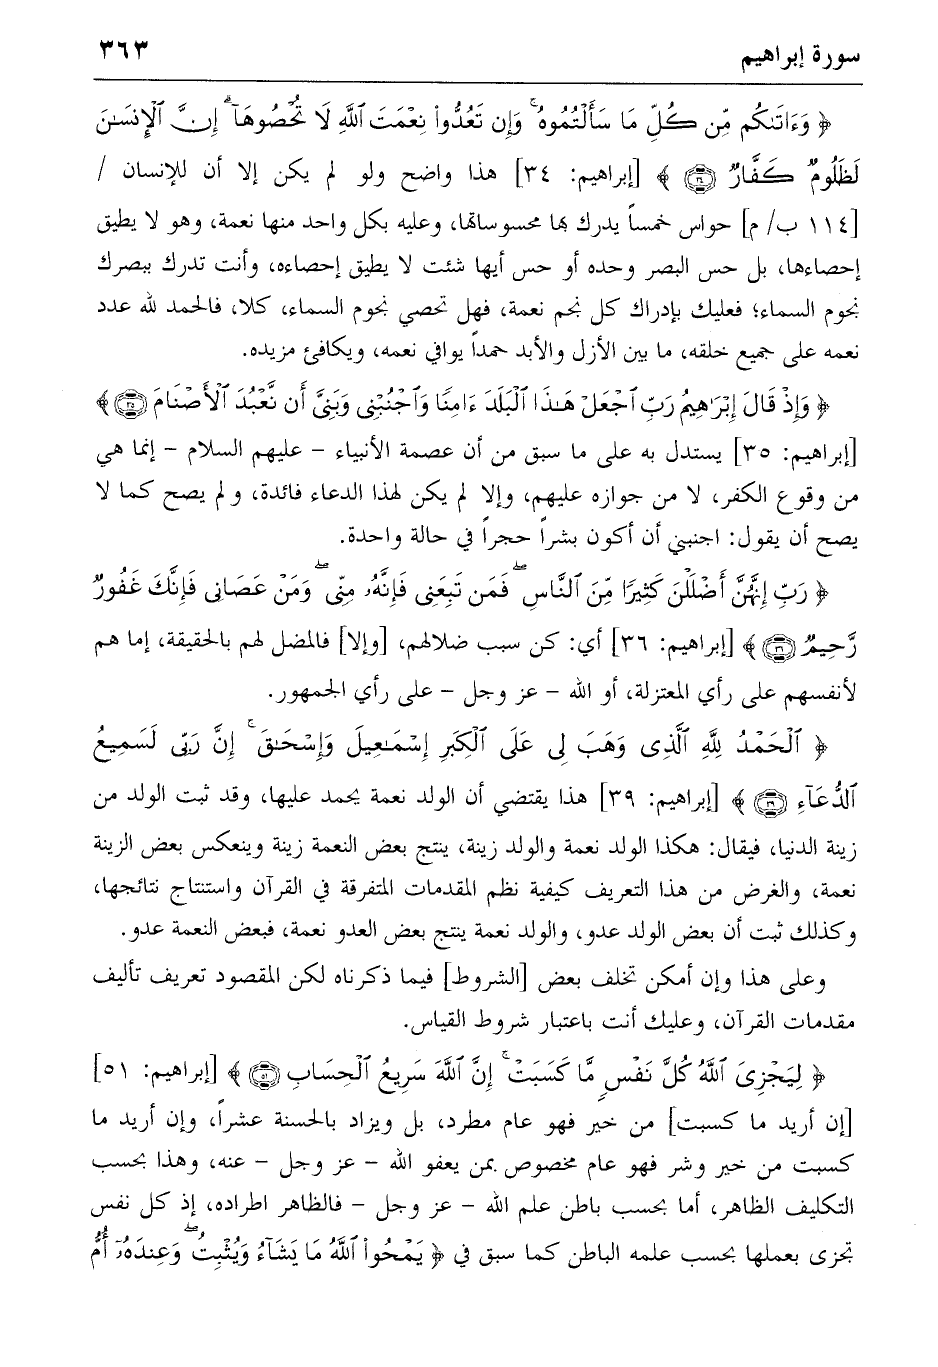 سورة إبراهيم ٣٦٣
﴿ وَءَاتَىٰكُم مِّن كُلِّ مَا سَأَلْتُمُوهُ ۚ وَإِن تَعُدُّواْ نِعْمَتَ ٱللَّهِ لَا تُحْصُوهَآ ۗ إِنَّ ٱلْإِنسَـٰنَ
لَظَلُومٌ كَفَّارٌ ۝٣٤ ﴾ [إبراهيم: ٣٤] هذا واضح ولو لم يكن إلا أن للإنسان /
[١١٤ ب/ م] حواس خمساً يدرك بها محسوساتها، وعليه بكل واحد منها نعمة، وهو لا يطيق
إحصاءها، بل حس البصر وحده أو حس أيها شئت لا يطيق إحصاءه، وأنت تدرك ببصرك
نجوم السماء؛ فعليك بإدراك كل نجم نعمة، فهل تحصي نجوم السماء، كلا، فالحمد لله عدد
نعمه على جميع خلقه، ما بين الأزل والأبد حمداً يوافي نعمه، ويكافئ مزيده.
﴿ وَإِذْ قَالَ إِبْرَٰهِيمُ رَبِّ ٱجْعَلْ هَـٰذَا ٱلْبَلَدَ ءَامِنًا وَٱجْنُبْنِى وَبَنِىَّ أَن نَّعْبُدَ ٱلْأَصْنَامَ ۝٣٥ ﴾
[إبراهيم: ٣٥] يستدل به على ما سبق من أن عصمة الأنبياء - عليهم السلام - إنما هي
من وقوع الكفر، لا من جوازه عليهم، وإلا لم يكن لهذا الدعاء فائدة، ولم يصح كما لا
يصح أن يقول: اجنبني أن أكون بشراً حجراً في حالة واحدة.
﴿ رَبِّ إِنَّهُنَّ أَضْلَلْنَ كَثِيرًا مِّنَ ٱلنَّاسِ ۖ فَمَن تَبِعَنِى فَإِنَّهُۥ مِنِّى ۖ وَمَنْ عَصَانِى فَإِنَّكَ غَفُورٌ
رَّحِيمٌ ۝٣٦ ﴾ [إبراهيم: ٣٦] أي: كن سبب ضلالهم، [وإلا] فالمضل لهم بالحقيقة، إما هم
لأنفسهم على رأي المعتزلة، أو الله - عز وجل - على رأي الجمهور.
﴿ ٱلْحَمْدُ لِلَّهِ ٱلَّذِى وَهَبَ لِى عَلَى ٱلْكِبَرِ إِسْمَـٰعِيلَ وَإِسْحَـٰقَ ۚ إِنَّ رَبِّى لَسَمِيعُ
ٱلدُّعَآءِ ۝٣٩ ﴾ [إبراهيم: ٣٩] هذا يقتضي أن الولد نعمة يحمد عليها، وقد ثبت الولد من
زينة الدنيا، فيقال: هكذا الولد نعمة والولد زينة، ينتج بعض النعمة زينة وينعكس بعض الزينة
نعمة، والغرض من هذا التعريف كيفية نظم المقدمات المتفرقة في القرآن واستنتاج نتائجها،
وكذلك ثبت أن بعض الولد عدو، والولد نعمة ينتج بعض العدو نعمة، فبعض النعمة عدو.
وعلى هذا وإن أمكن تخلف بعض [الشروط] فيما ذكرناه لكن المقصود تعريف تأليف
مقدمات القرآن، وعليك أنت باعتبار شروط القياس.
﴿ لِيَجْزِىَ ٱللَّهُ كُلَّ نَفْسٍ مَّا كَسَبَتْ ۚ إِنَّ ٱللَّهَ سَرِيعُ ٱلْحِسَابِ ۝٥١ ﴾ [إبراهيم: ٥١]
[إن أريد ما كسبت] من خير فهو عام مطرد، بل ويزاد بالحسنة عشراً، وإن أريد ما
كسبت من خير وشر فهو عام مخصوص بمن يعفو الله - عز وجل - عنه، وهذا بحسب
التكليف الظاهر، أما بحسب باطن علم الله - عز وجل - فالظاهر اطراده، إذ كل نفس
تجزى بعملها بحسب علمه الباطن كما سبق في ﴿ يَمْحُواْ ٱللَّهُ مَا يَشَآءُ وَيُثْبِتُ ۖ وَعِندَهُۥٓ أُمُّ